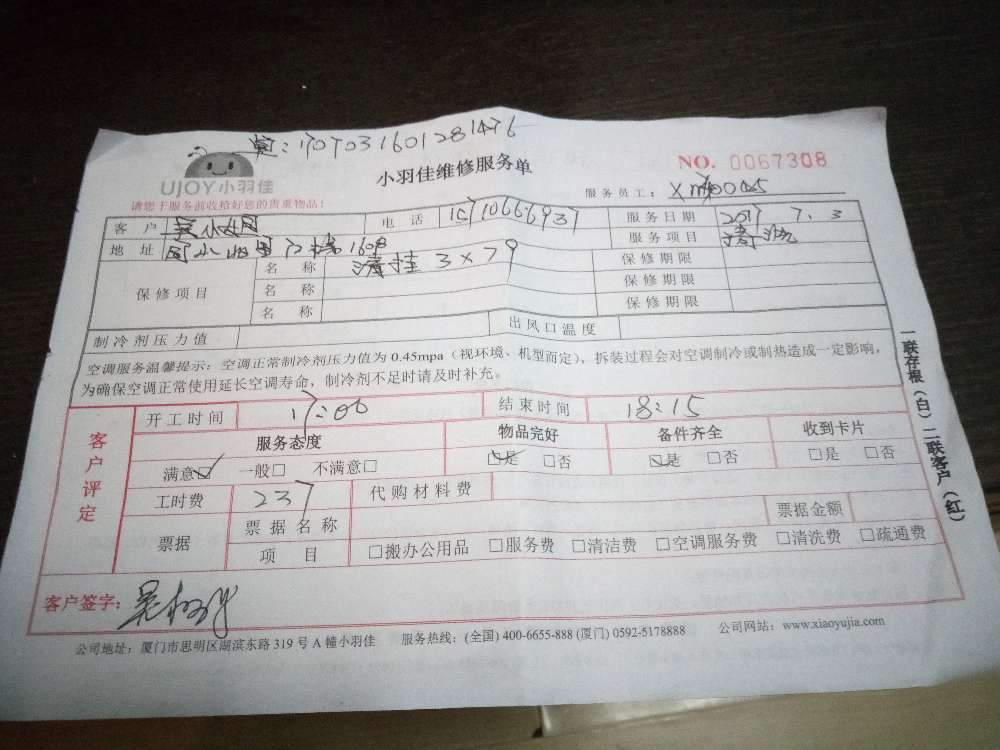 1707031601281476
UJOY小羽佳
小羽佳维修服务单
NO. 0067308
请您于服务前收拾好您的贵重物品!
服务员工:
客户 电话 服务日期 2017 7.3
地址 1608 服务项目 清洗
保修项目 名称 清挂 3×79 保修期限
名称 保修期限
名称 保修期限
制冷剂压力值 出风口温度
空调服务温馨提示:空调正常制冷剂压力值为 0.45mpa(视环境、机型而定),拆装过程会对空调制冷或制热造成一定影响,
为确保空调正常使用延长空调寿命,制冷剂不足时请及时补充。
客户评定
开工时间 17:00 结束时间 18:15
服务态度 物品完好 备件齐全 收到卡片
满意☑ 一般□ 不满意□ ☑是 □否 ☑是 □否 □是 □否
工时费 237 代购材料费
票据 票据名称 票据金额
项目 □搬办公用品 □服务费 □清洁费 □空调服务费 □清洗费 □疏通费
客户签字:
公司地址:厦门市思明区湖滨东路 319 号 A 幢小羽佳 服务热线:(全国) 400-6655-888 (厦门) 0592-5178888 公司网站:www.xiaoyujia.com
一联存根(白)二联客户(红)